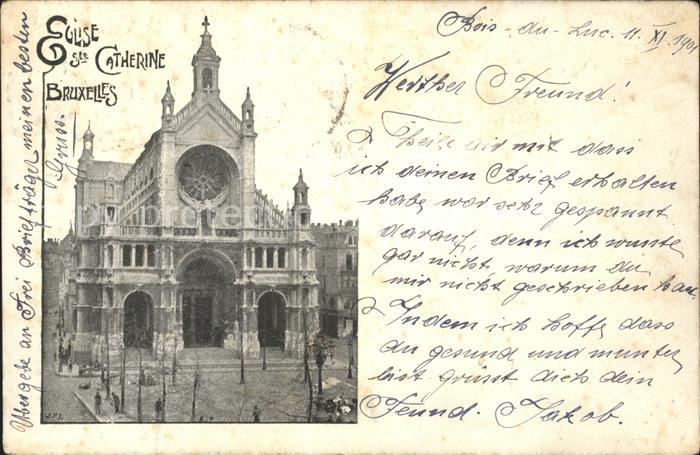 EGLISE
Ste CATHERINE
BRUXELLES
Bois-du-Luc. 11. XI. 190
Werther Freund!
Theile dir mit dass
ich deinen Brief erhalten
habe, war sehr gespannt
darauf, denn ich wusste
gar nicht, warum du
mir nicht geschrieben hast
Indem ich hoffe dass
du gesund und munter
bist grüsst dich dein
Feund. Jakob.
Übergebe an Frei Briefträger meinen besten
Gruss.